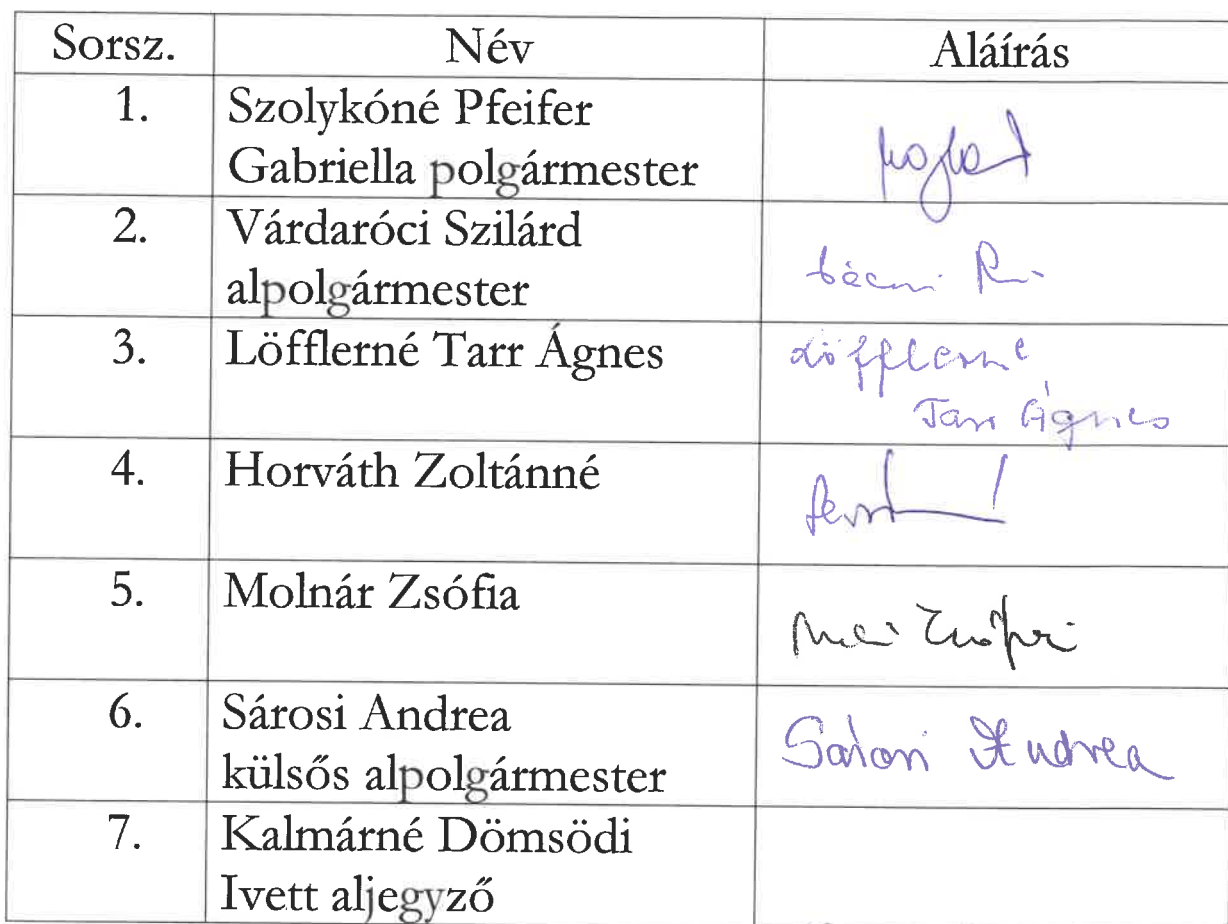 Sorsz. Név Aláírás
1. Szolykóné Pfeifer
Gabriella polgármester
2. Várdaróci Szilárd
alpolgármester
3. Löfflerné Tarr Ágnes Löfflerné
Tarr Ágnes
4. Horváth Zoltánné
5. Molnár Zsófia
6. Sárosi Andrea Sárosi Andrea
külsős alpolgármester
7. Kalmárné Dömsödi
Ivett aljegyző